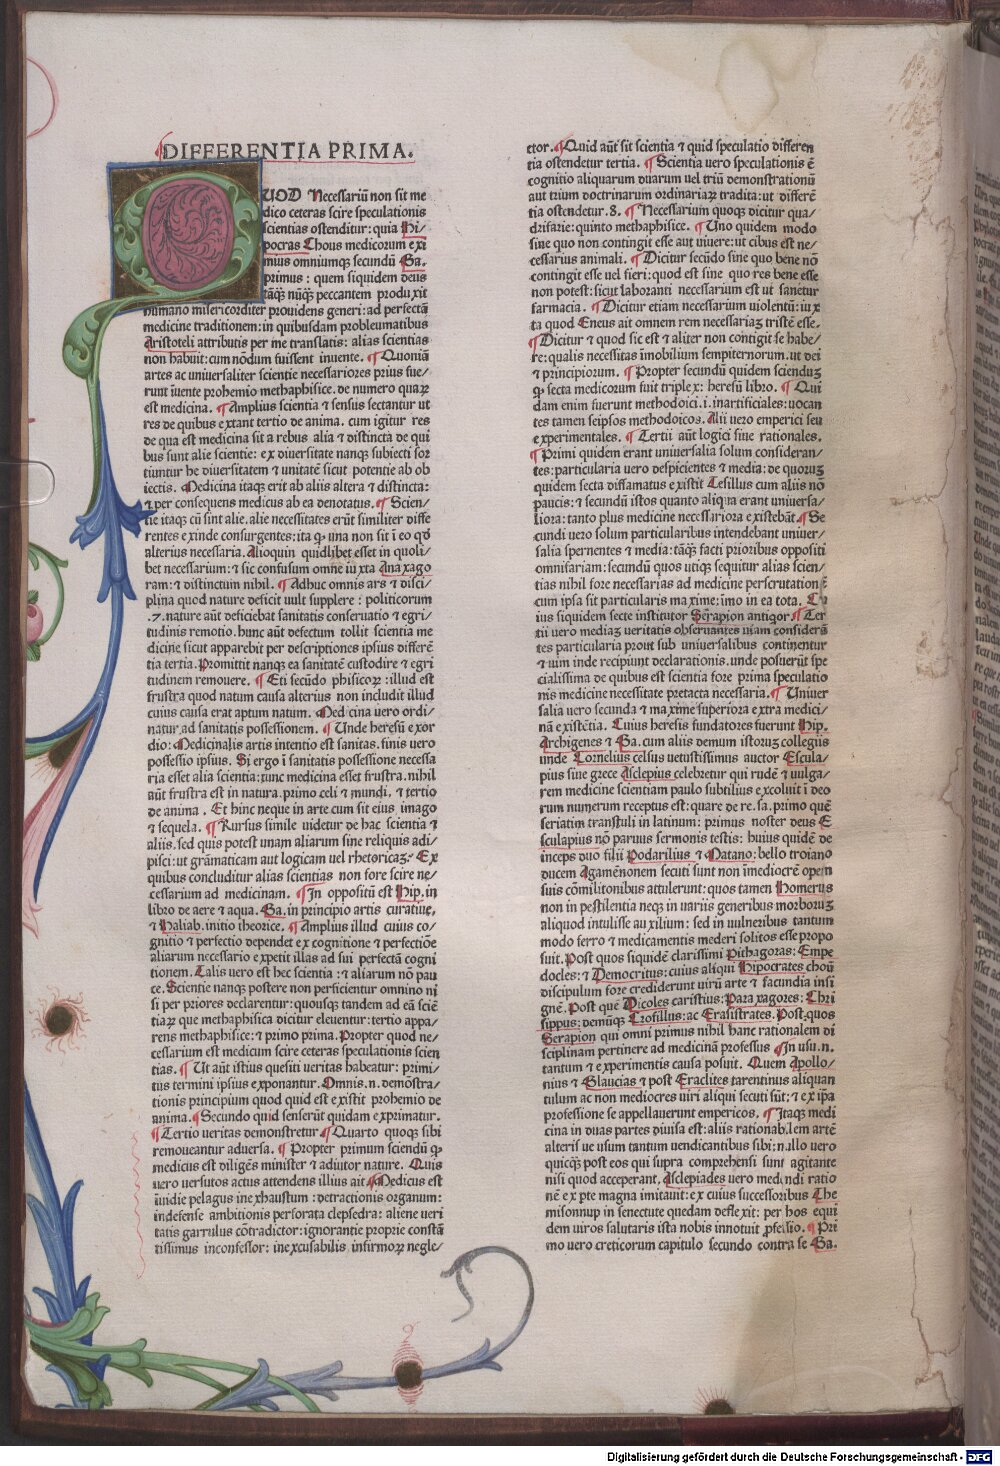 DIFFERENTIA PRIMA.
QUOD Necessariũ non sit me
dico ceteras scire speculationis
scientias ostenditur: quia Hi/
pocras Chous medicorum exi
mus omniumqꝫ secundũ Ga.
primus: quem siquidem deus
tãqꝫ nũqꝫ peccantem produxit
humano misericorditer prouidens generi: ad perfectã
medicine traditionem: in quibusdam probleumatibus
Aristoteli attributis per me translatis: alias scientias
non habuit: cum nõdum fuissent inuente. ¶ Quoniã
artes ac uniuersaliter scientie necessariores prius fue/
runt iuente prohemio methaphisice. de numero quaꝝ
est medicina. ¶ Amplius scientia ⁊ sensus sectantur ut
res de quibus extant tertio de anima. cum igitur res
de qua est medicina sit a rebus alia ⁊ distincta de qui
bus sunt alie scientie: ex diuersitate nanqꝫ subiecti sor
tiuntur he diuersitatem ⁊ unitatẽ sicut potentie ab ob
iectis. Medicina itaqꝫ erit ab aliis altera ⁊ distincta:
⁊ per consequens medicus ab ea denotatus. ¶ Scien/
tie itaqꝫ cũ sint alie. alie necessitates erũt similiter diffe
rentes exinde consurgentes: ita ꝙ una non sit ĩ eo qď
alterius necessaria. Alioquin quidlibet esset in quoli/
bet necessarium: ⁊ sic confusum omne iuxta Anaxago
ram: ⁊ distinctum nihil. ¶ Adhuc omnis ars ⁊ disci/
plina quod nature deficit uult supplere: politicorum
.7. nature aũt deficiebat sanitatis conseruatio ⁊ egri/
tudinis remotio. hunc aũt defectum tollit scientia me
dicine. sicut apparebit per descriptiones ipsius differẽ
tia tertia. Promittit nanqꝫ ea sanitatẽ custodire ⁊ egri
tudinem remouere. ¶ Eti secũdo phisicoꝝ: illud est
frustra quod natum causa alterius non includit illud
cuius causa erat aptum natum. Medicina uero ordi/
natur ad sanitatis possessionem. ¶ Unde heresũ exor
dio: Medicinalis artis intentio est sanitas. finis uero
possessio ipsius. Si ergo ĩ sanitatis possessione necessa
ria esset alia scientia: tunc medicina esset frustra. nihil
aũt frustra est in natura. primo celi ⁊ mundi. ⁊ tertio
de anima. Et hinc neque in arte cum sit eius imago
⁊ sequela. ¶ Rursus simile uidetur de hac scientia ⁊
aliis. sed quis potest unam aliarum sine reliquis adi/
pisci: ut grãmaticam aut logicam uel rhetoricaꝫ: Ex
quibus concluditur alias scientias non fore scire ne/
cessarium ad medicinam. ¶ In oppositũ est Hip. in
libro de aere ⁊ aqua. Ga. in principio artis curatiue.
⁊ Haliab. initio theorice. ¶ Amplius illud cuius co/
gnitio ⁊ perfectio dependet ex cognitione ⁊ perfectiõe
aliarum necessario expetit illas ad sui perfectã cogni
tionem. Talis uero est hec scientia: ⁊ aliarum nõ pau
ce. Scientie nanqꝫ postere non perficientur omnino ni
si per priores declarentur: quousqꝫ tandem ad eã sciẽ
tiaꝝ que methaphisica dicitur eleuentur: tertio appa/
rens methaphisice: ⁊ primo prima. Propter quod ne/
cessarium est medicum scire ceteras speculationis scien
tias. ¶ Ut aũt istius quesiti ueritas habeatur: primi/
tus termini ipsius exponantur. Omnis .n. demõstra/
tionis principium quod quid est existit prohemio de
anima. ¶ Secundo quid senserũt quidam exprimatur.
¶ Tertio ueritas demonstretur. ¶ Quarto quoqꝫ sibi
remoueantur aduersa. ¶ Propter primum sciendũ ꝙ
medicus est diligẽs minister ⁊ adiutor nature. Quis
uero uersutos actus attendens illius ait ¶ Medicus est
ĩuidie pelagus inexhaustum: detractionis organum:
indefense ambitionis persorata clepsedra: aliene ueri
tatis garrulus cõtradictor: ignorantie proprie constã
tissimus inconfessor: inexcusabilis infirmoꝝ negle/
ctor. ¶ Quid aũt sit scientia ⁊ quid speculatio differen
tia ostendetur tertia. ¶ Scientia uero speculationis ẽ
cognitio aliquarum duarum uel triũ demonstrationũ
aut trium doctrinarum ordinariaꝝ tradita: ut differẽ
tia ostendetur .8. ¶ Necessarium quoqꝫ dicitur qua/
drifarie: quinto methaphisice. ¶ Uno quidem modo
sine quo non contingit esse aut uiuere: ut cibus est ne/
cessarius animali. ¶ Dicitur secũdo sine quo bene nõ
contingit esse uel fieri: quod est sine quo res bene esse
non potest: sicut laboranti necessarium est ut sanetur
farmacia. ¶ Dicitur etiam necessarium uiolentũ: iux
ta quod Eneus ait omnem rem necessariaꝫ tristẽ esse.
¶ Dicitur ⁊ quod sic est ⁊ aliter non contigit se habe/
re: qualis necessitas ĩmobilium sempiternorum. ut dei
⁊ principiorum. ¶ Propter secundũ quidem sciendũ
ꝙ secta medicorum fuit triplex: heresũ libro. ¶ Qui
dam enim fuerunt methodoici .i. inartificiales: uocan
tes tamen seipsos methodoicos. Alii uero emperici seu
experimentales. ¶ Tertii aũt logici siue rationales.
¶ Primi quidem erant uniuersalia solum consideran/
tes: particularia uero despicientes ⁊ media: de quorũ
quidem secta diffamatus existit Tesillus cum aliis nõ
paucis: ⁊ secundũ istos quanto aliqua erant uniuersa/
liora: tanto plus medicine necessariora existebãt. ¶ Se
cundi uero solum particularibus intendebant uniuer/
salia spernentes ⁊ media: tãqꝫ facti prioribus oppositi
omnifariam: secundũ quos utiqꝫ sequitur alias scien/
tias nihil fore necessarias ad medicine perscrutationẽ
cum ipsa sit particularis maxime: imo in ea tota. Cu
ius siquidem secte institutor Serapion antiqor ¶ Ter
tii uero mediaꝫ ueritatis obseruantes uiam considerã
tes particularia prout sub uniuersalibus continentur
⁊ uim inde recipiunt declarationis. unde posuerũt spe
cialissima de quibus est scientia fore prima speculatio
nis medicine necessitate pretacta necessaria. ¶ Uniuer
salia uero secunda ⁊ maxime superiora extra medici/
nã existẽtia. Cuius heresis fundatores fuerunt Hip.
Archigenes ⁊ Ga. cum aliis demum istorũ collegiis
unde Cornelius celsus uetustissimus auctor Escula/
pius sine grece Asclepius celebretur qui rudẽ ⁊ uulga/
rem medicine scientiam paulo subtilius excoluit ĩ deo
rum numerum receptus est: quare de re. sa. primo quẽ
seriatim transtuli in latinum: primus noster deus E
sculapius nõ paruus sermonis testis: huius quidẽ de
inceps duo filii Podarilius ⁊ Matano: bello troiano
ducem Agamẽnonem secuti sunt non ĩmediocrẽ opem
suis cõmilitonibus attulerunt: quos tamen Homerus
non in pestilentia neqꝫ in uariis generibus morborũ
aliquod intulisse auxilium: sed in uulneribus tantum
modo ferro ⁊ medicamentis mederi solitos esse propo
suit. Post quos siquidẽ clarissimi Pithagoras: Empe
docles: ⁊ Democritus: cuius aliqui Hipocrates choũ
discipulum fore crediderunt uirũ arte ⁊ facundia insi
gnẽ. Post quẽ Dicoles caristius: Paraxagores: Chri
sippus: demũqꝫ Erofillus: ac Erasistrates. Post quos
Serapion qui omni primus nihil hanc rationalem di
sciplinam pertinere ad medicinã professus ¶ In usu .n.
tantum ⁊ experimentis causa posuit. Quem Apollo/
nius ⁊ Glaucias ⁊ post Eraclites tarentinus aliquan
tulum ac non mediocres uiri aliqui secuti sũt: ⁊ ex ip̃a
professione se appellauerunt empericos. ¶ Itaqꝫ medi
cina in duas partes diuisa est: aliis rationabilem artẽ
alteris ue usum tantum uendicantibus sibi: nullo uero
quicqꝫ post eos qui supra comprehensi sunt agitante
nisi quod acceperant. Asclepiades uero medendi ratio
nẽ ex pte magna imitauit: ex cuius successoribus The
misonnup in senectute quedam deflexit: per hos equi
dem uiros salutaris ista nobis innotuit ꝓfessio. ¶ Pri
mo uero creticorum capitulo secundo contra se Ga.
Digitalisierung gefördert durch die Deutsche Forschungsgemeinschaft - DFG